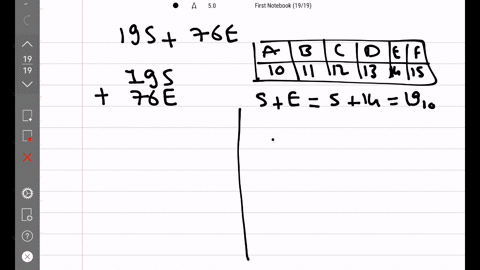 5.0 First Notebook (19/19)
195 + 76E
195
+ 76E
A B C D E F
10 11 12 13 14 15
5 + E = 5 + 14 = 19₁₀
19
19